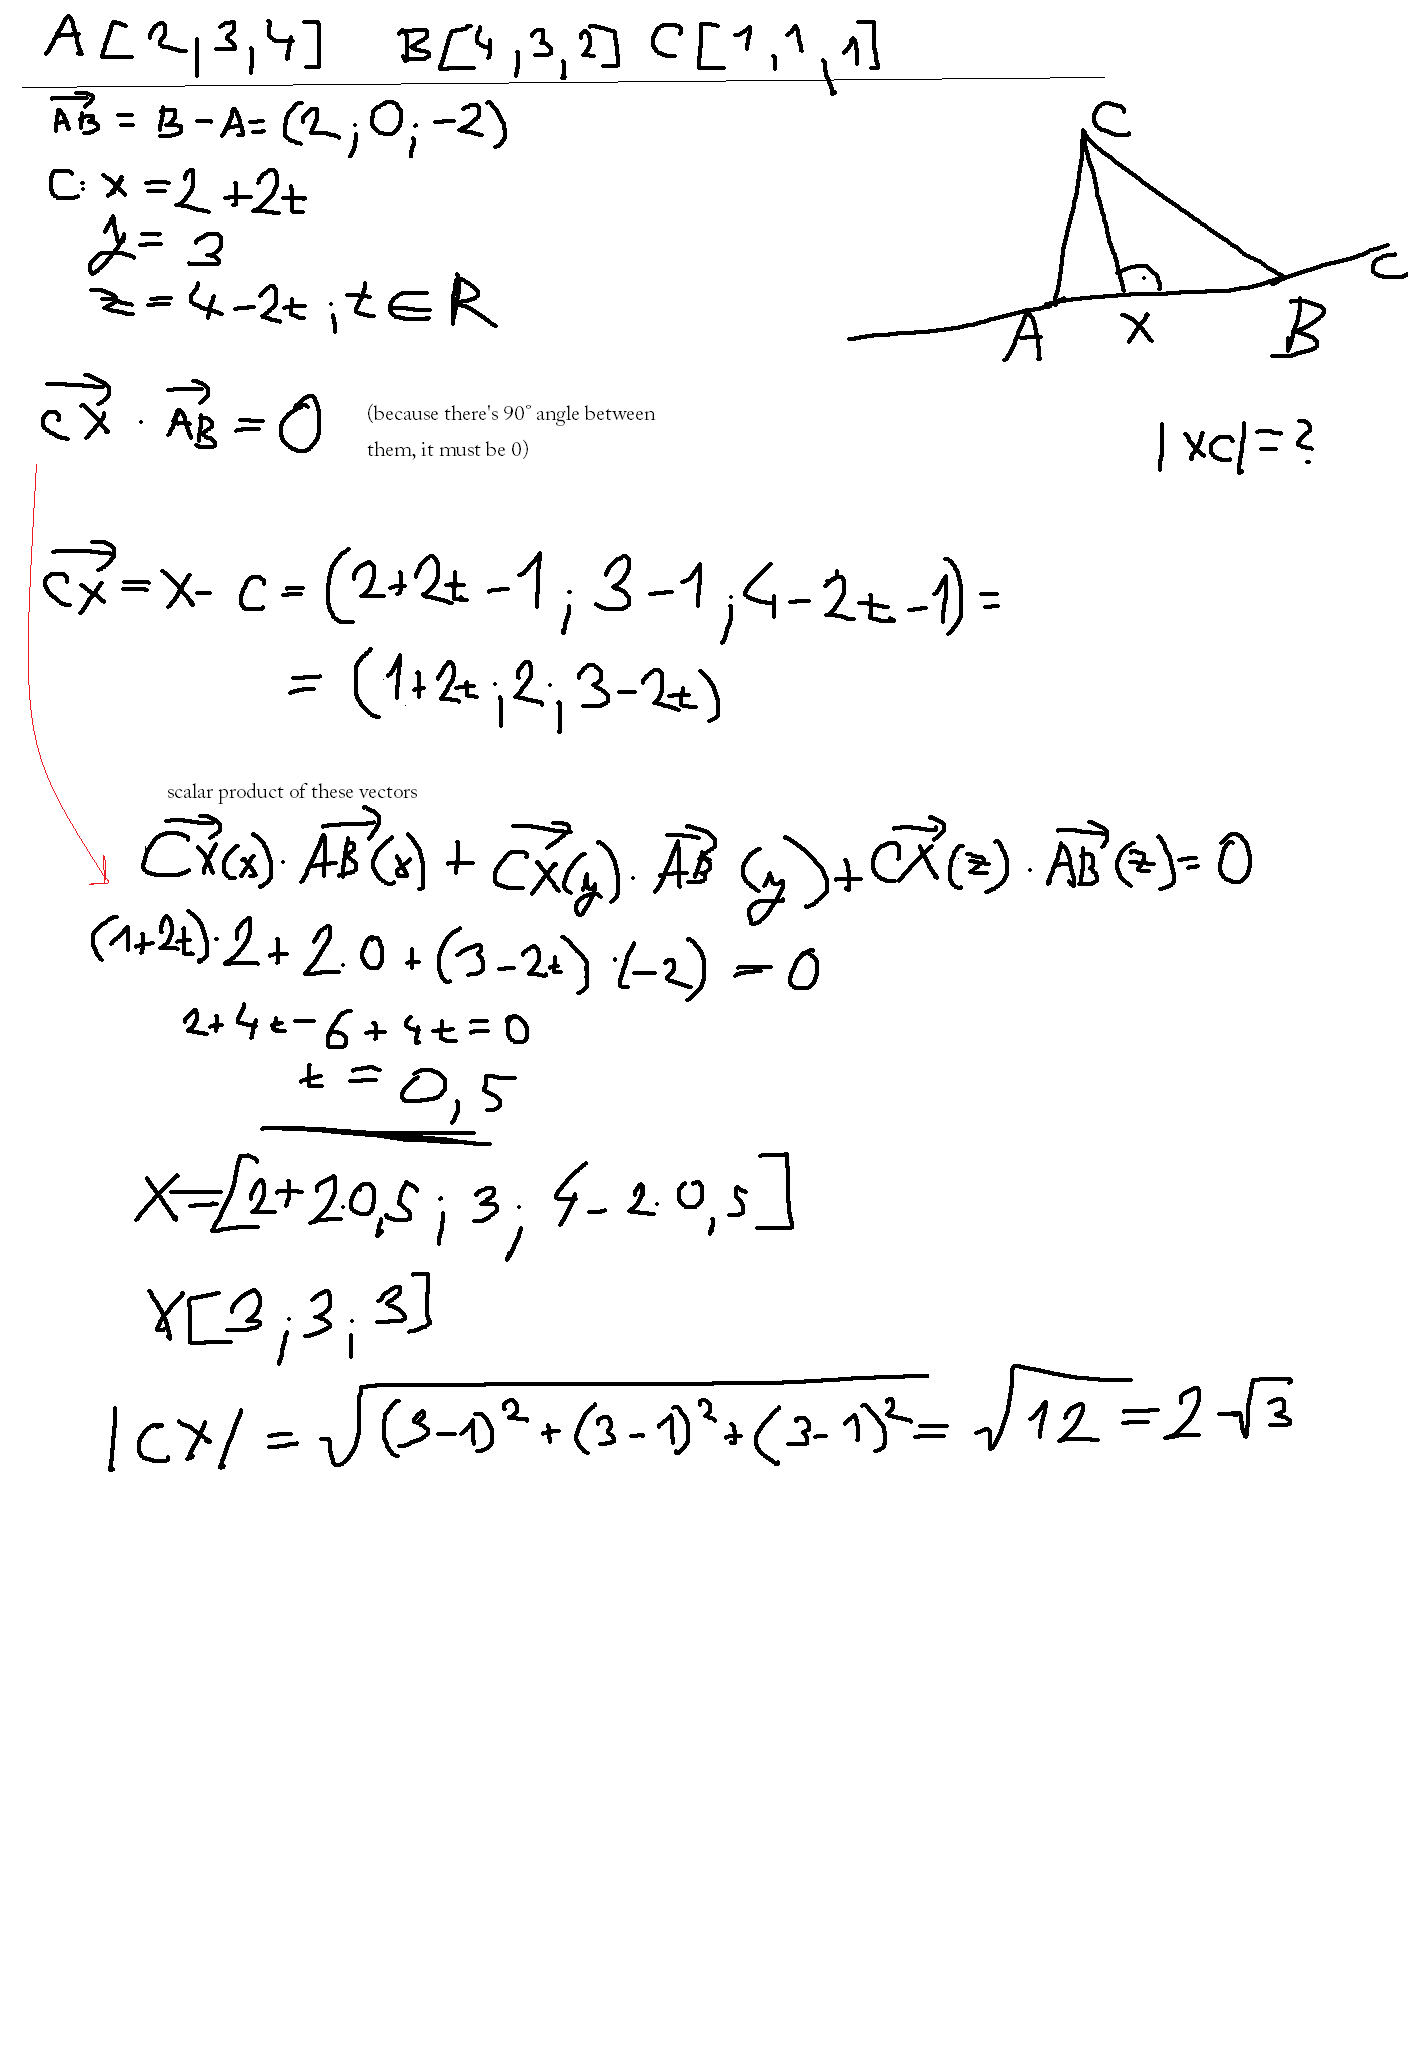 A [2,3,4] B[4,3,2] C[1,1,1]
AB = B - A = (2; 0; -2)
C: x = 2 + 2t
y = 3
z = 4 - 2t ; t ∈ R
C
A X B C
|XC| = ?
CX · AB = 0 (because there's 90° angle between
them, it must be 0)
CX = X - C = (2+2t - 1 ; 3 - 1 ; 4 - 2t - 1) =
= (1+2t ; 2 ; 3 - 2t)
scalar product of these vectors
CX(x) · AB(x) + CX(y) · AB(y) + CX(z) · AB(z) = 0
(1+2t) · 2 + 2 · 0 + (3 - 2t) · (-2) = 0
2 + 4t - 6 + 4t = 0
t = 0,5
X = [2 + 2·0,5 ; 3 ; 4 - 2·0,5]
X[3 ; 3 ; 3]
|CX| = √(3-1)² + (3-1)² + (3-1)² = √12 = 2√3